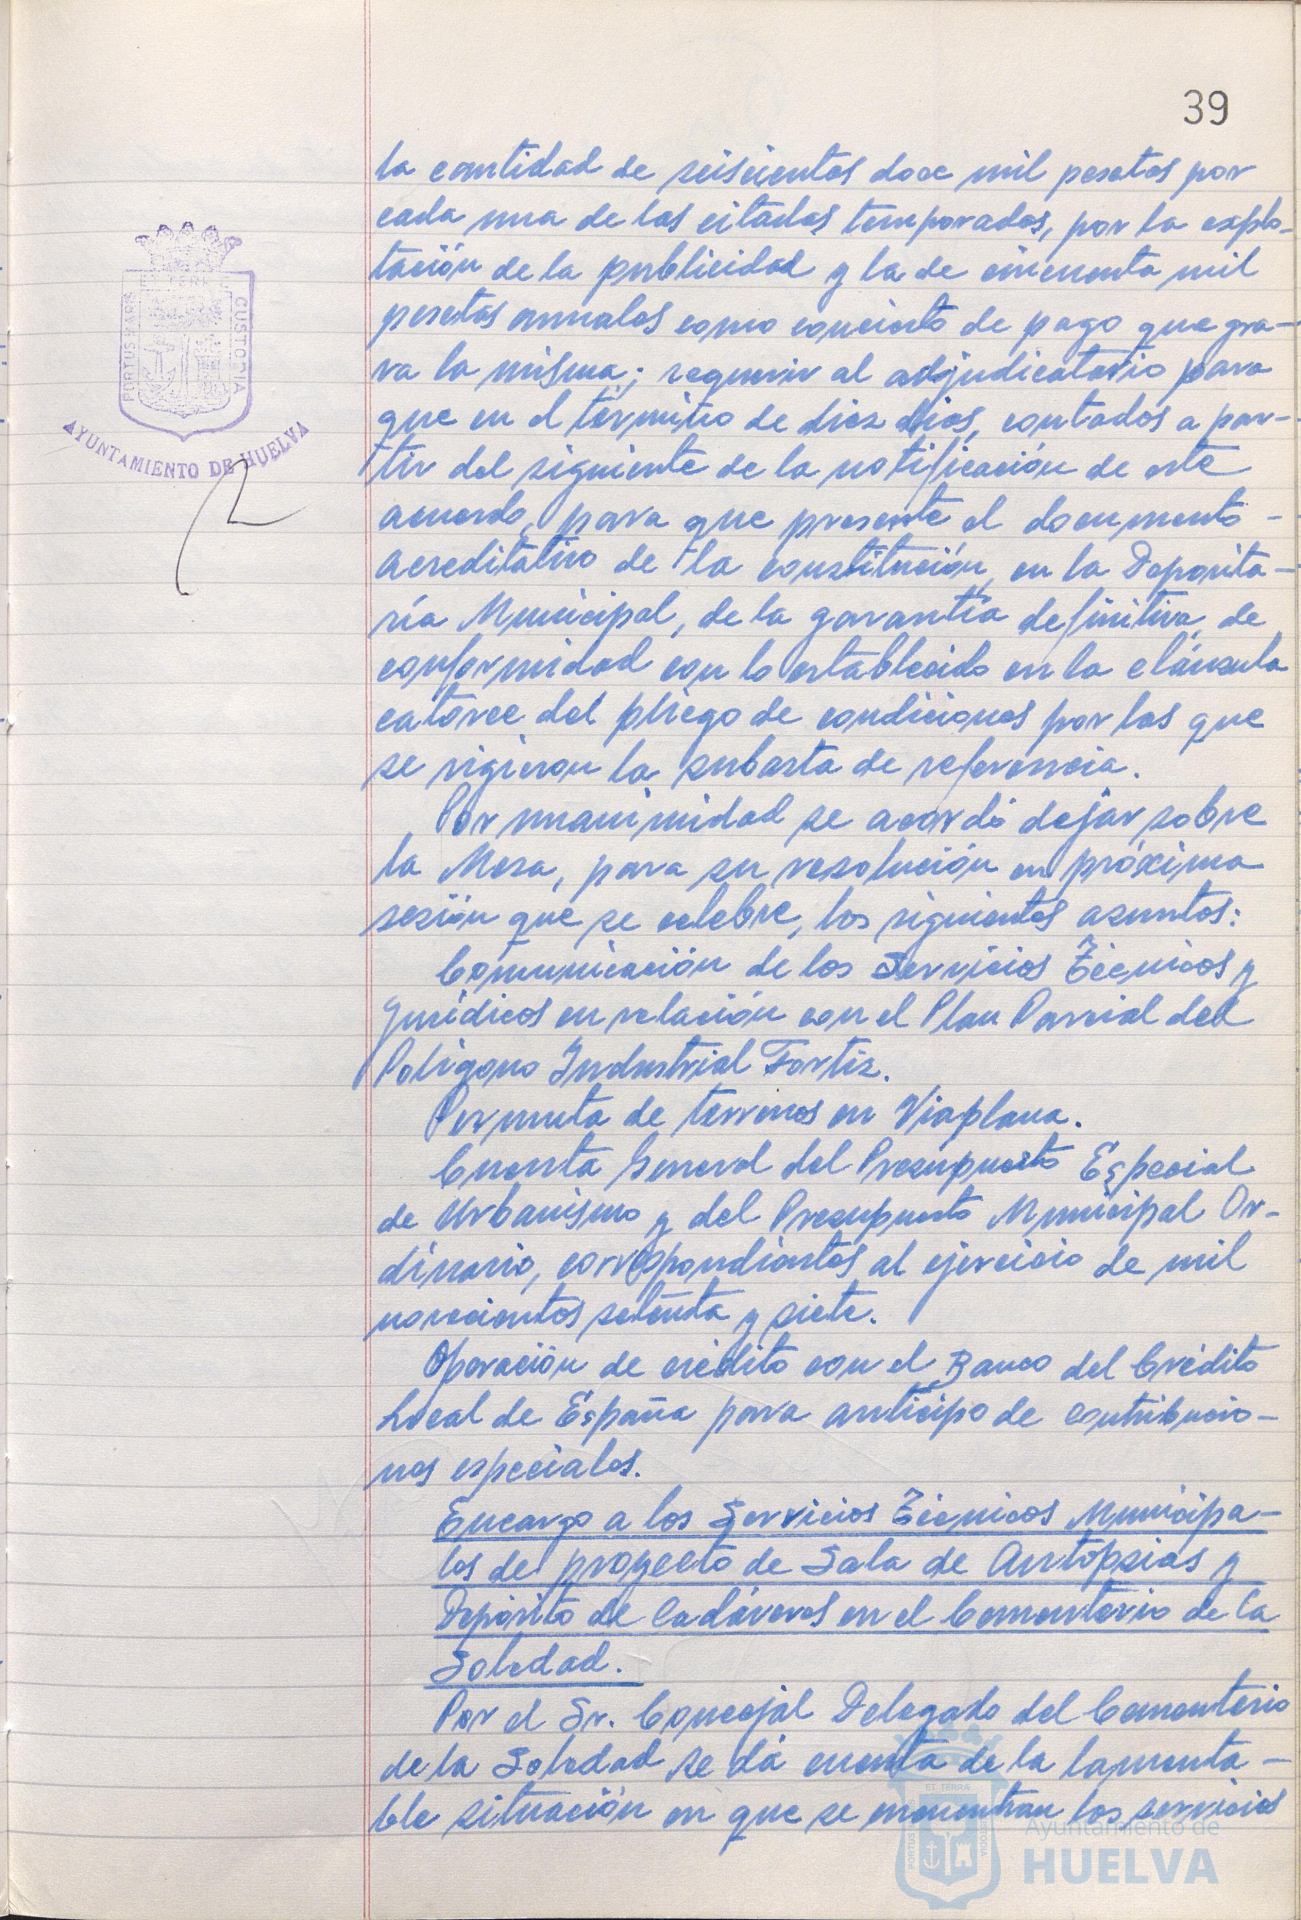 39
la cantidad de seiscientas doce mil pesetas por
cada una de las citadas temporadas, por la explo-
tación de la publicidad y la de cincuenta mil
pesetas anuales como concierto de pago que gra-
va la misma; requerir al adjudicatario para
que en el término de diez días, contados a par-
tir del siguiente de la notificación de este
acuerdo, para que presente el documento -
acreditativo de la constitución, en la Deposita-
ría Municipal, de la garantía definitiva, de
conformidad con lo establecido en la cláusula
catorce del pliego de condiciones por las que
se rigieron la subasta de referencia.
Por unanimidad se acordó dejar sobre
la Mesa, para su resolución en próxima
sesión que se celebre, los siguientes asuntos:
Comunicación de los Servicios Técnicos y
Jurídicos en relación con el Plan Parcial del
Polígono Industrial Fortiz.
Permuta de terrenos en Viaplana.
Cuenta General del Presupuesto Especial
de Urbanismo y del Presupuesto Municipal Or-
dinario, correspondientes al ejercicio de mil
novecientos setenta y siete.
Operación de crédito con el Banco del Crédito
Local de España para anticipo de contribucio-
nes especiales.
Encargo a los Servicios Técnicos Municipa-
les del proyecto de Sala de Autopsias y
Depósito de Cadáveres en el Cementerio de La
Soledad.
Por el Sr. Concejal Delegado del Cementerio
de la Soledad se dá cuenta de la lamenta-
ble situación en que se encuentran los servicios
PORTUS MARIS
ET TERRE
CUSTODIA
AYUNTAMIENTO DE HUELVA
Ayuntamiento de
HUELVA